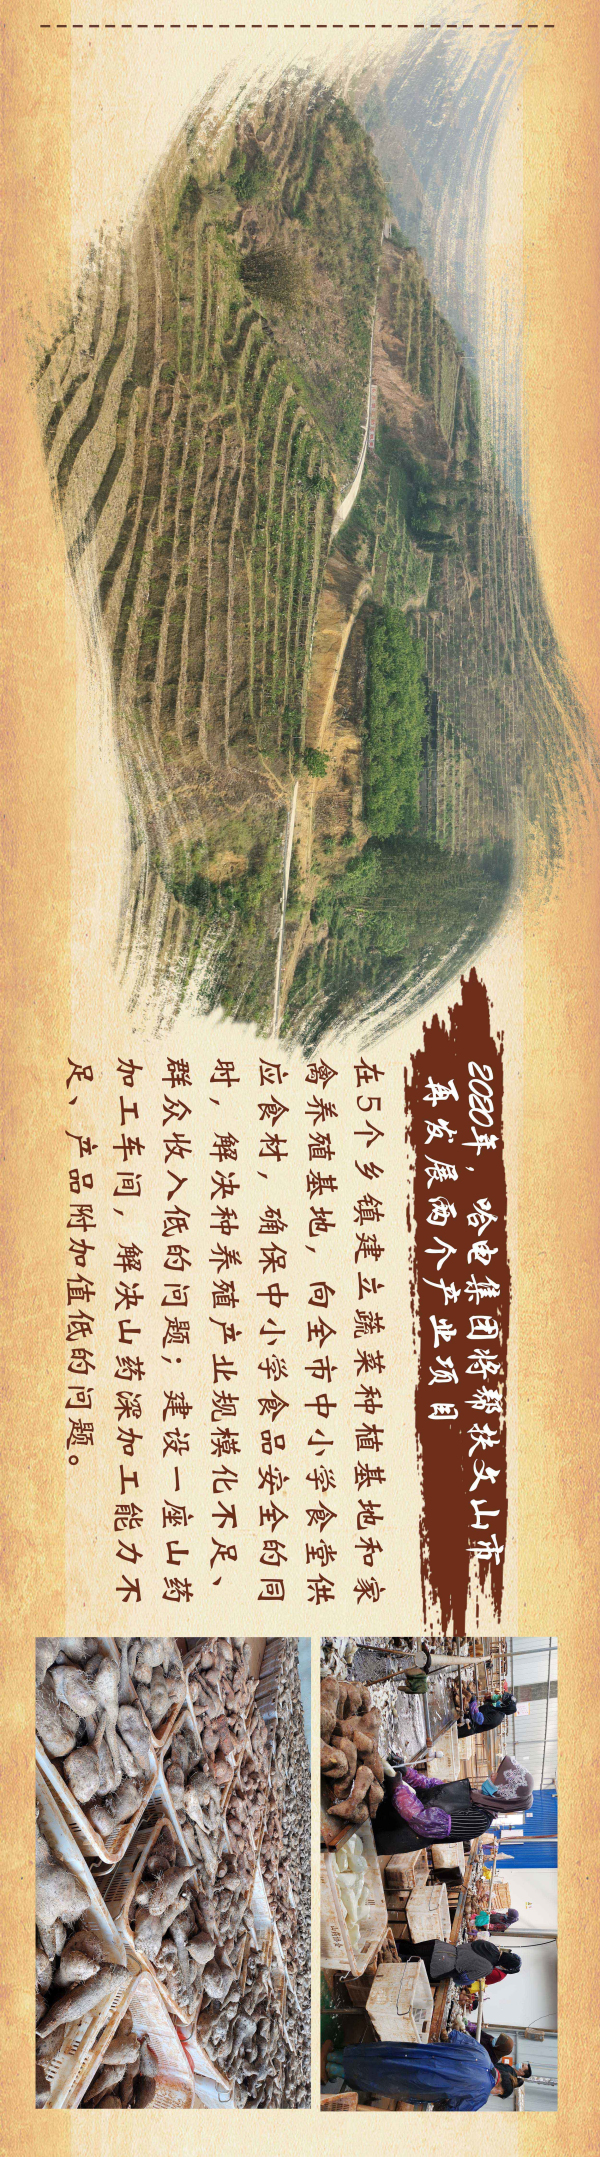 2020年，哈电集团将帮扶文山市
再发展两个产业项目
在5个乡镇建立蔬菜种植基地和家
禽养殖基地，向全市中小学食堂供
应食材，确保中小学食品安全的同
时，解决种养殖产业规模化不足、
群众收入低的问题；建设一座山药
加工车间，解决山药深加工能力不
足、产品附加值低的问题。